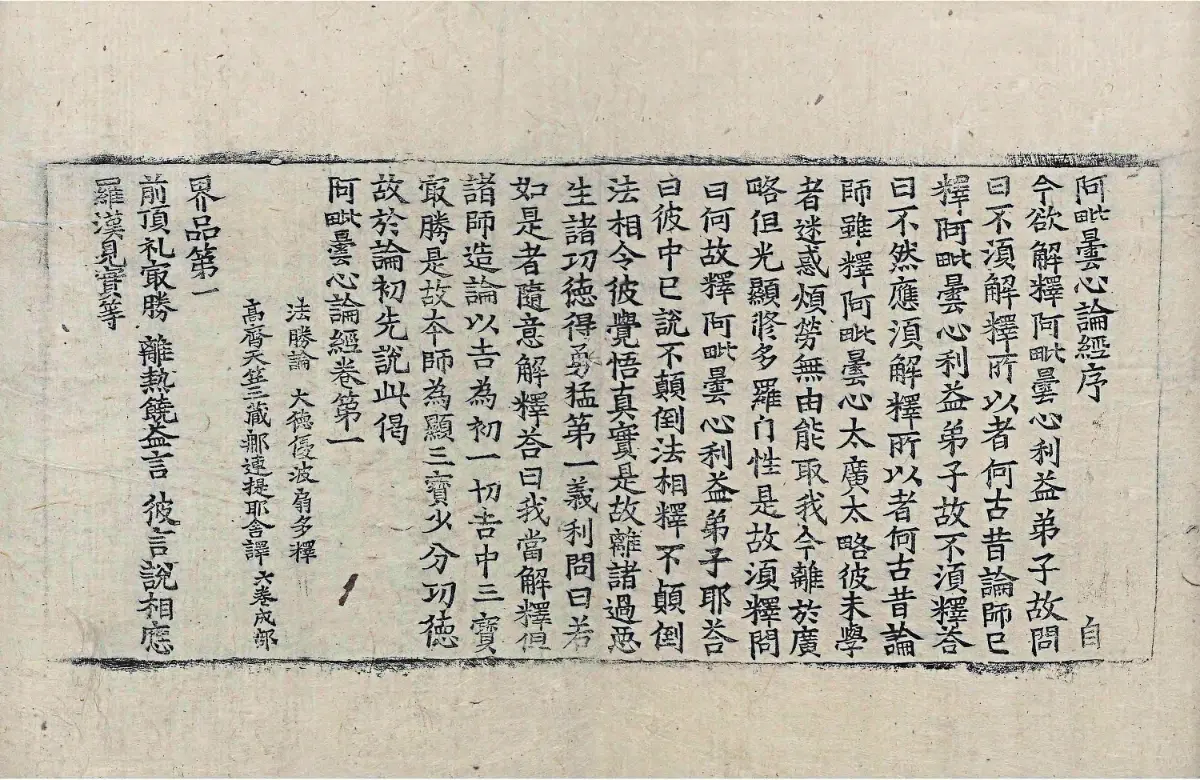 阿毗曇心論經序 自
今欲解釋阿毗曇心利益弟子故問
曰不湏解釋所以者何古昔論師已
釋阿毗曇心利益弟子故不湏釋荅
曰不然應湏解釋所以者何古昔論
師雖釋阿毗曇心太廣太略彼未學
者迷惑煩勞無由能取我今離於廣
略但光顯修多羅门性是故湏釋問
曰何故釋阿毗曇心利益弟子耶荅
曰彼中已說不顛倒法相釋不顛倒
法相令彼覺悟真實是故離諸過惡
生諸功徳得勇猛第一義利問曰若
如是者隨意解釋荅曰我當解釋但
諸師造論以吉為初一切吉中三寶
冣勝是故夲師為顯三寶少分功徳
故於論初先說此偈
阿毗曇心論經卷第一
法勝論 大徳優波扇多釋
髙齊天竺三藏那連提耶舎譯 六卷成部
界品第一
前頂礼冣勝 離熱饒益言 彼言說相應
羅漢見實等